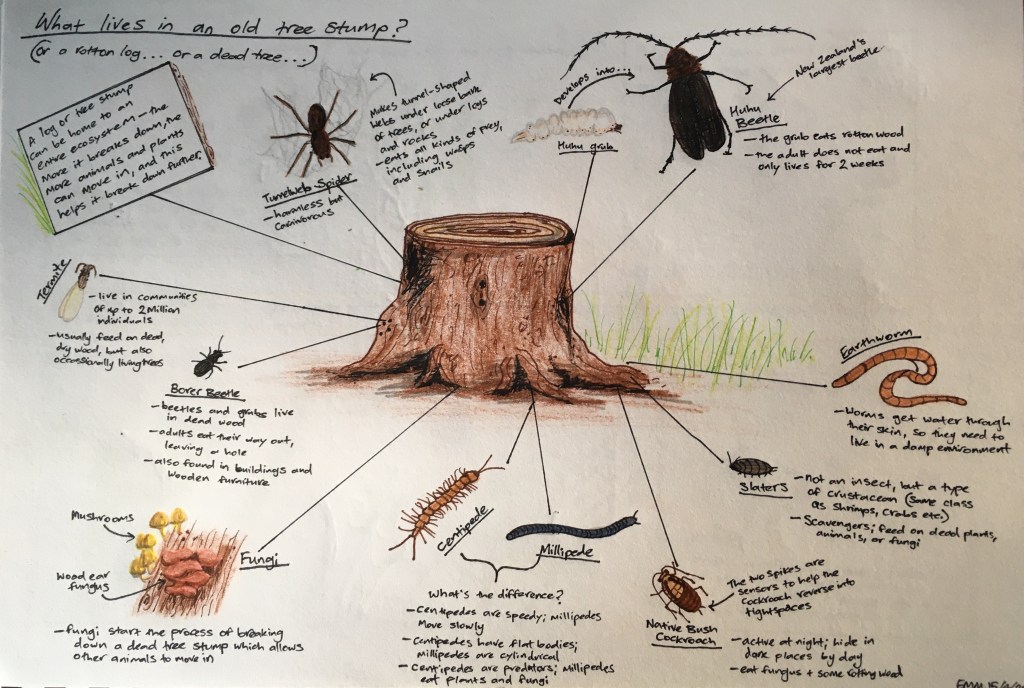 What lives in an old tree stump?
(or a rotton log... or a dead tree...)
A log or tree stump
can be home to an
entire ecosystem - the
more it breaks down, the
more animals and plants
can move in, and this
helps it break down further.
Tunnelweb Spider
- harmless but
carnivorous
Makes tunnel-shaped
webs under loose bark
of trees, or under logs
and rocks
- eats all kinds of prey,
including wasps
and snails
Develops into...
Huhu grub
New Zealand's
largest beetle
Huhu
Beetle
- the grub eats rotton wood
- the adult does not eat and
only lives for 2 weeks
Termite
- live in communities
of up to 2 Million
individuals
- usually feed on dead,
dry wood, but also
occassionally living trees
Borer Beetle
- beetles and grubs live
in dead wood
- adults eat their way out,
leaving a hole
- also found in buildings and
wooden furniture
Earthworm
- Worms get water through
their skin, so they need to
live in a damp environment
Slaters
- Not an insect, but a type
of crustacean (same class
as shrimps, crabs etc.)
- Scavengers; feed on dead plants,
animals, or fungi
Mushrooms
Wood ear
fungus
Fungi
- fungi start the process of breaking
down a dead tree stump which allows
other animals to move in
Centipede
Millipede
What's the difference?
- Centipedes are speedy; millipedes
move slowly
- Centipedes have flat bodies;
millipedes are cylindrical
- Centipedes are predators; millipedes
eat plants and fungi
Native Bush
Cockroach
The two spikes are
sensors to help the
cockroach reverse into
tight spaces
- active at night; hide in
dark places by day
- eat fungus + some rotting wood